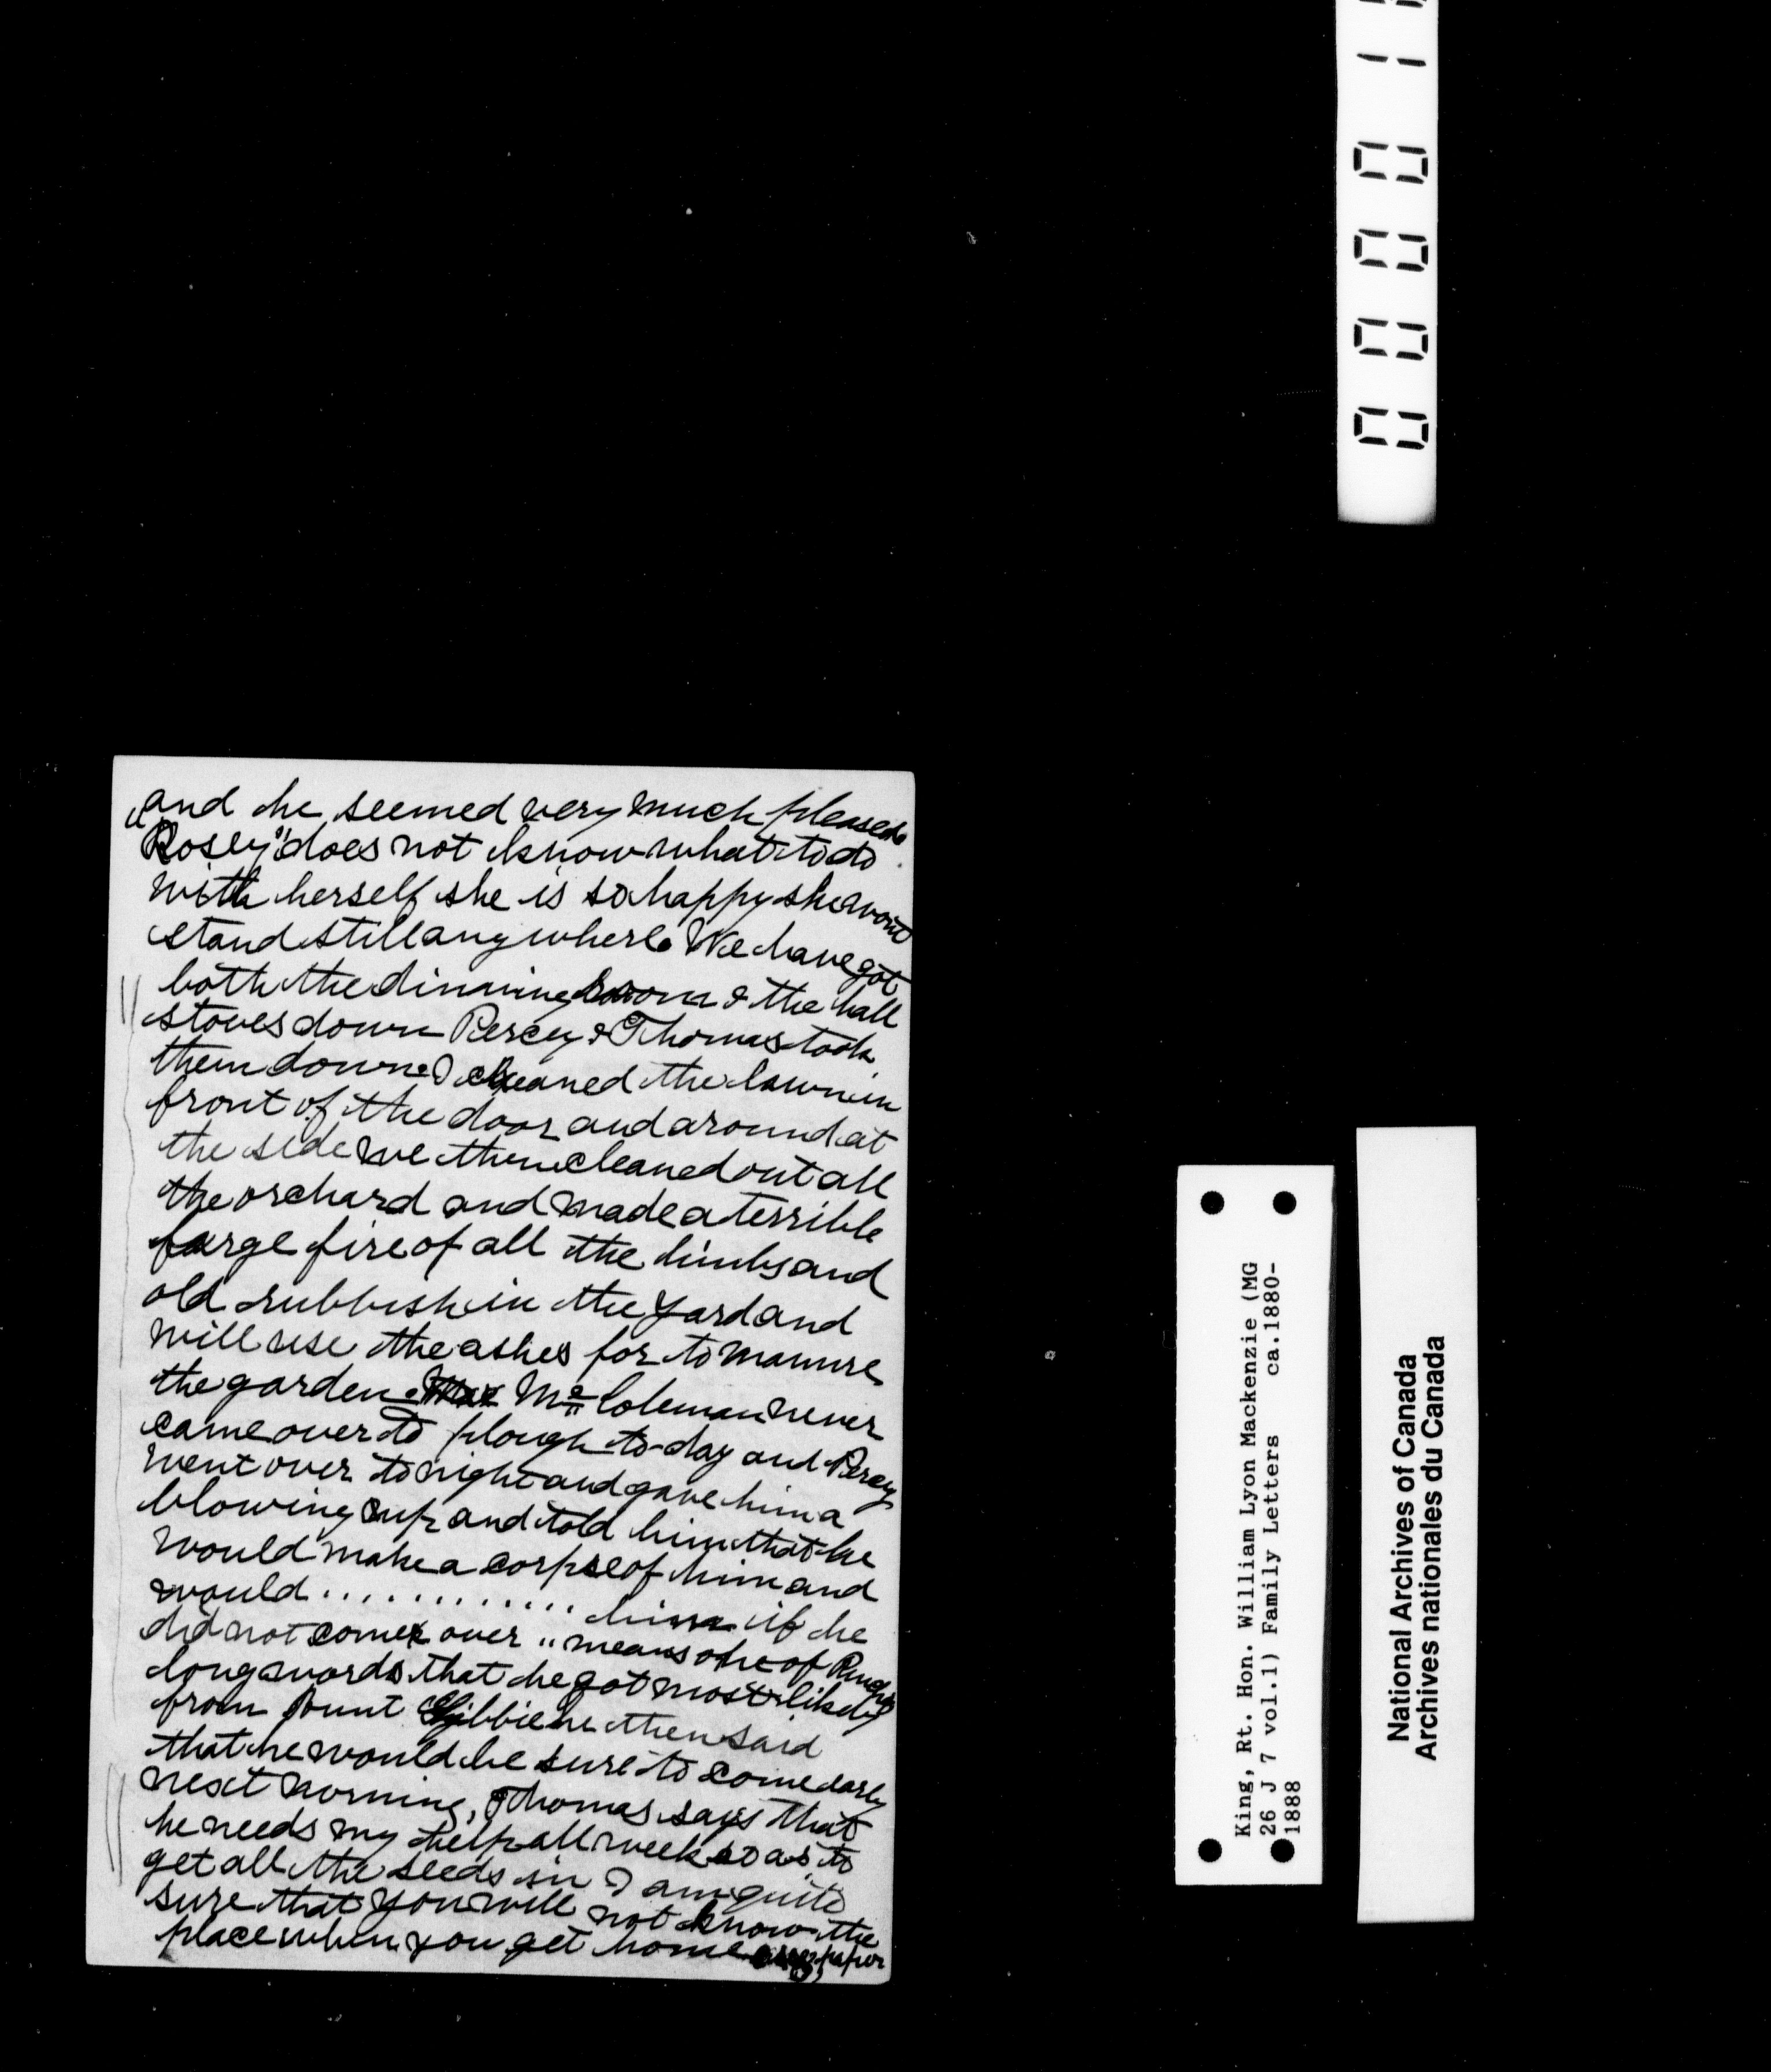 and he seemed very much pleased.
"Rosey" does not know what to do
with herself she is so happy she wont
stand still any where. We have got
both the dinning room & the hall
stoves down Percey & Thomas took
them down. I cleaned the lawn in
front of the door and around at
the side we then cleaned out all
the orchard and made a terrible
large fire of all the limbs and
old rubbish in the yard and
will use the ashes for to manure
the garden. Mr Coleman never
came over to plough to-day and Percy
went over to night and gave him a
blowing up and told him that he
would make a corpse of him and
would ............ him if he
did not come over " means one of
long words that he got most likely
from Aunt Libbie he then said
that he would be sure to come early
next morning, Thomas says that
he needs my help all week so as to
get all the seeds in I am quite
sure that you will not know the
place when you get home
0 0 0 0 1
King, Rt. Hon. William Lyon Mackenzie (MG
26 J 7 vol.1) Family Letters ca.1880-
1888
National Archives of Canada
Archives nationales du Canada